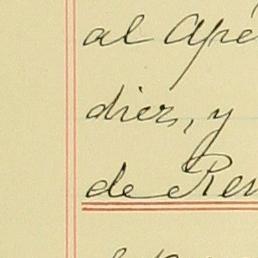 al Apé
diez, y
de Ren